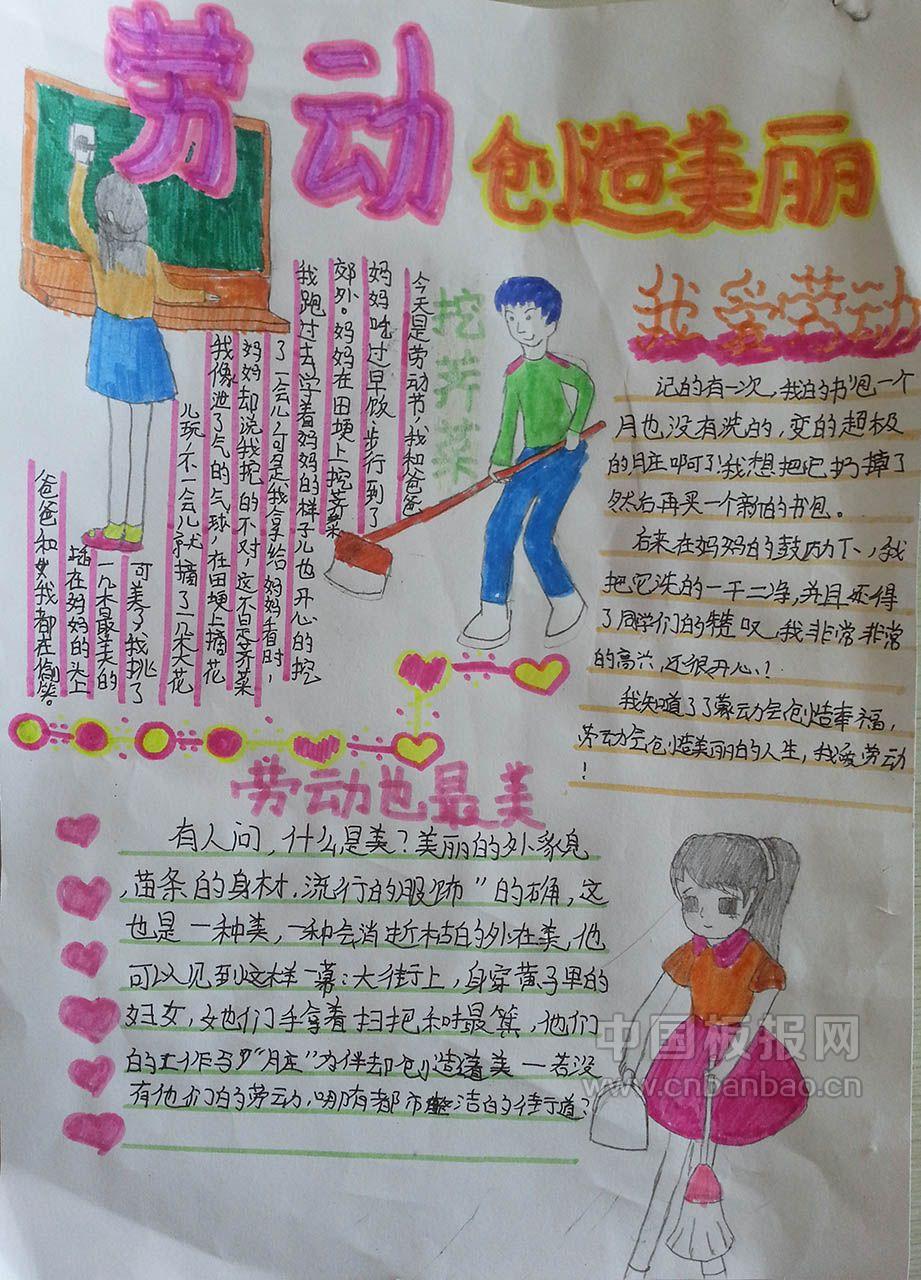 劳动
创造美丽
挖荠菜
今天是劳动节,我和爸爸
妈妈吃过早饭,步行到了
郊外。妈妈在田埂上挖荠菜
我跑过去学着妈妈的样子儿也开心的挖
了一会儿,可是我拿给妈妈看时,
妈妈却说我挖的不对,这不是荠菜
我像泄了气的气球,在田埂上摘花
儿玩,不一会儿就摘了一朵大花
可美了,我挑了
一几朵最美的
插在妈妈的头上
爸爸和我都在偷笑。
我爱劳动
记的有一次,我的书包一个
月也没有洗的,变的超极
的脏啊了!我想把它扔掉了
然后再买一个新的书包。
后来在妈妈的鼓励下,我
把它洗的一干二净,并且还得
了同学们的赞叹,我非常非常
的高兴,还很开心!
我知道了了劳动会创造幸福,
劳动会创造美丽的人生,我爱劳动
!
劳动也最美
有人问,什么是美?美丽的外象
,苗条的身材.流行的服饰”的确,这
也是一种美,一种会消逝枯的外在美,他
可以见到这样一幕:大街上,身穿黄子里的
妇女,她们手拿着扫把和簸箕,他们
的工作与“脏”为伴却创造着美一若没
有他们的劳动,哪有都市整洁的街道?
中国板报网
www.cnbanbao.cn